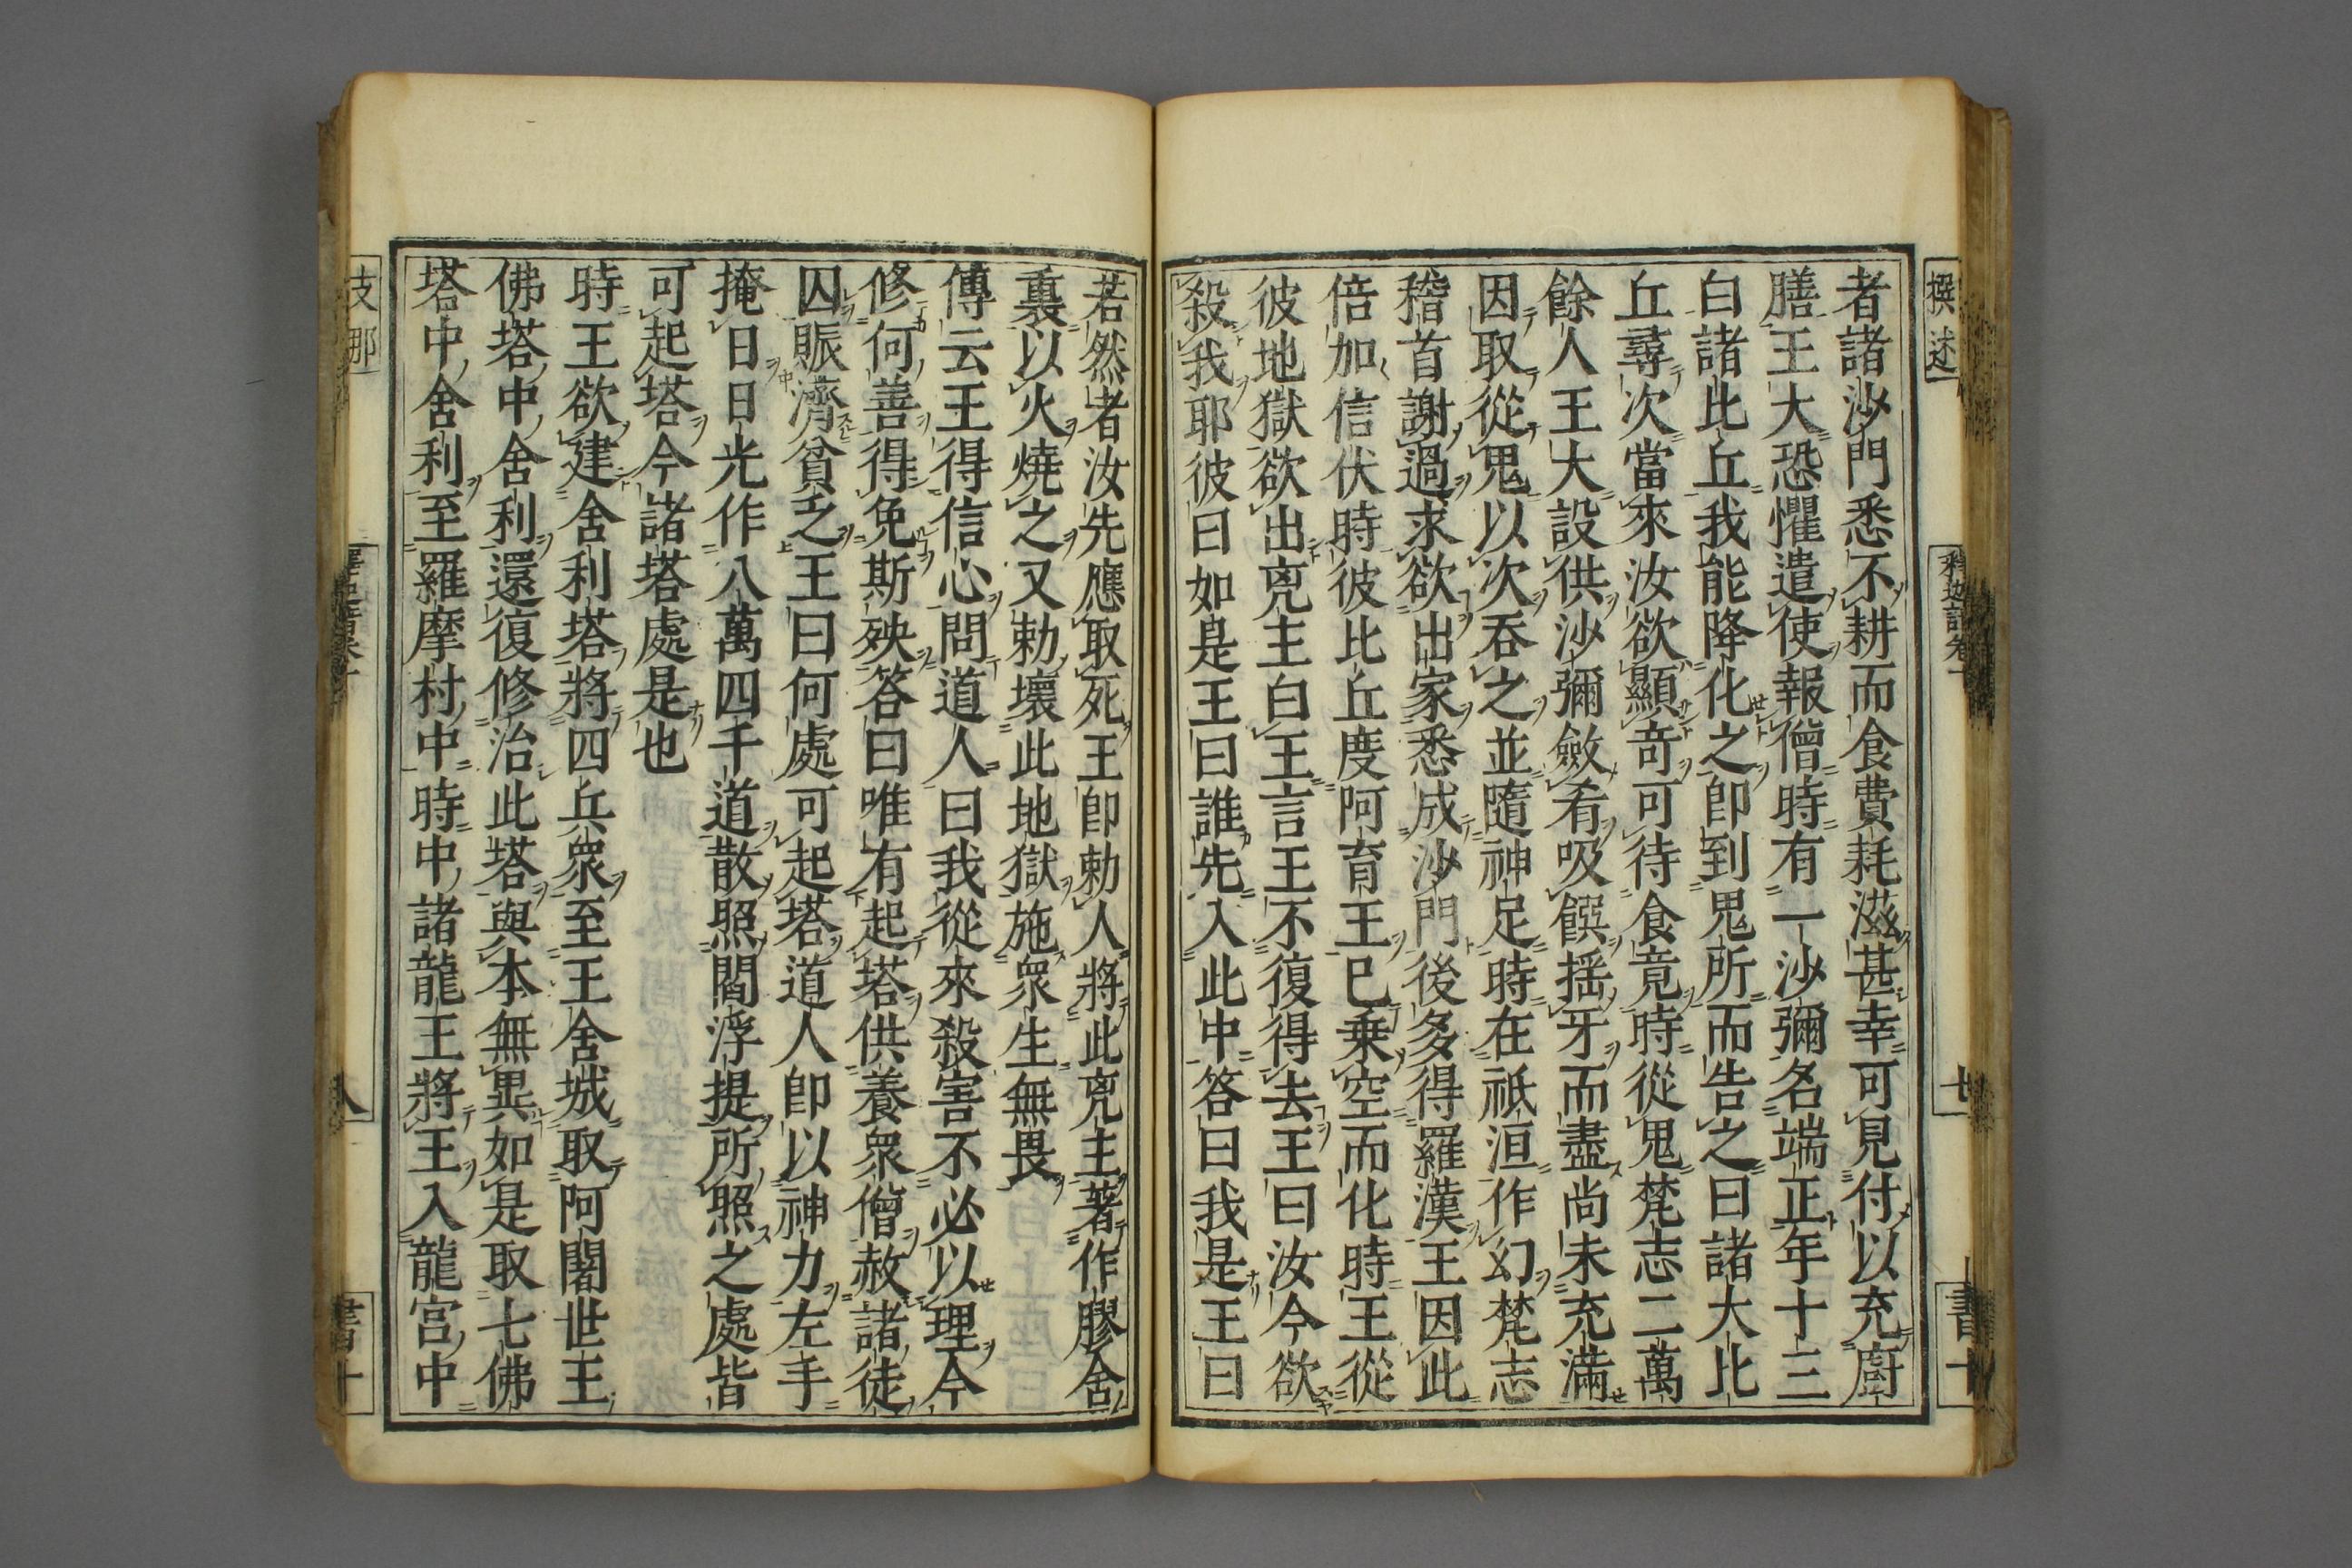 撰述
釋迦譜卷十
廿
書十
者諸沙門悉不耕而食費耗滋甚幸可見付以充廚
膳王大恐懼遣使報僧時有一沙彌名端正年十三
白諸比丘我能降化之即到鬼所而告之曰諸大比
丘尋次當來汝欲顯奇可待食竟時從鬼梵志二萬
餘人王大設供沙彌斂肴吸饌搖牙而盡尚未充滿
因取從鬼以次吞之並隨神足時在祇洹作幻梵志
稽首謝過求欲出家悉成沙門後多得羅漢王因此
倍加信伏時彼比丘度阿育王已乗空而化時王從
彼地獄欲出兇主白王言王不復得去王曰汝今欲
殺我耶彼曰如是王曰誰先入此中答曰我是王曰
若然者汝先應取死王即勅人將此兇主著作膠舍
裏以火燒之又勅壞此地獄施衆生無畏
傳云王得信心問道人曰我從來殺害不必以理今
修何善得免斯殃答曰唯有起塔供養衆僧赦諸徒
囚賑濟貧乏王曰何處可起塔道人即以神力左手
掩日日光作八萬四千道散照閻浮提所照之處皆
可起塔今諸塔處是也
時王欲建舍利塔將四兵衆至王舍城取阿闍世王
佛塔中舍利還復修治此塔與本無異如是取七佛
塔中舍利至羅摩村中時中諸龍王將王入龍宮中
支那
八
書十